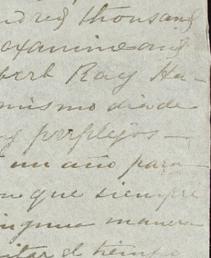 ndred thousand
examine and
bert Ray Ha-
mismo dia de
perplejos—
un año para
que siempre
inguna manera
itar el tiempo